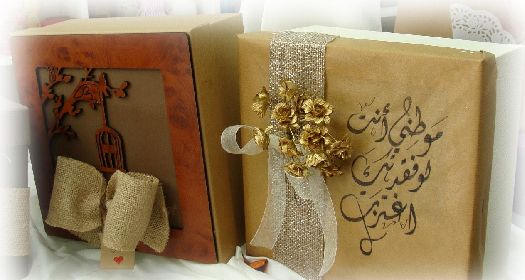 موطني أنت
لو فقدتك
أغترب